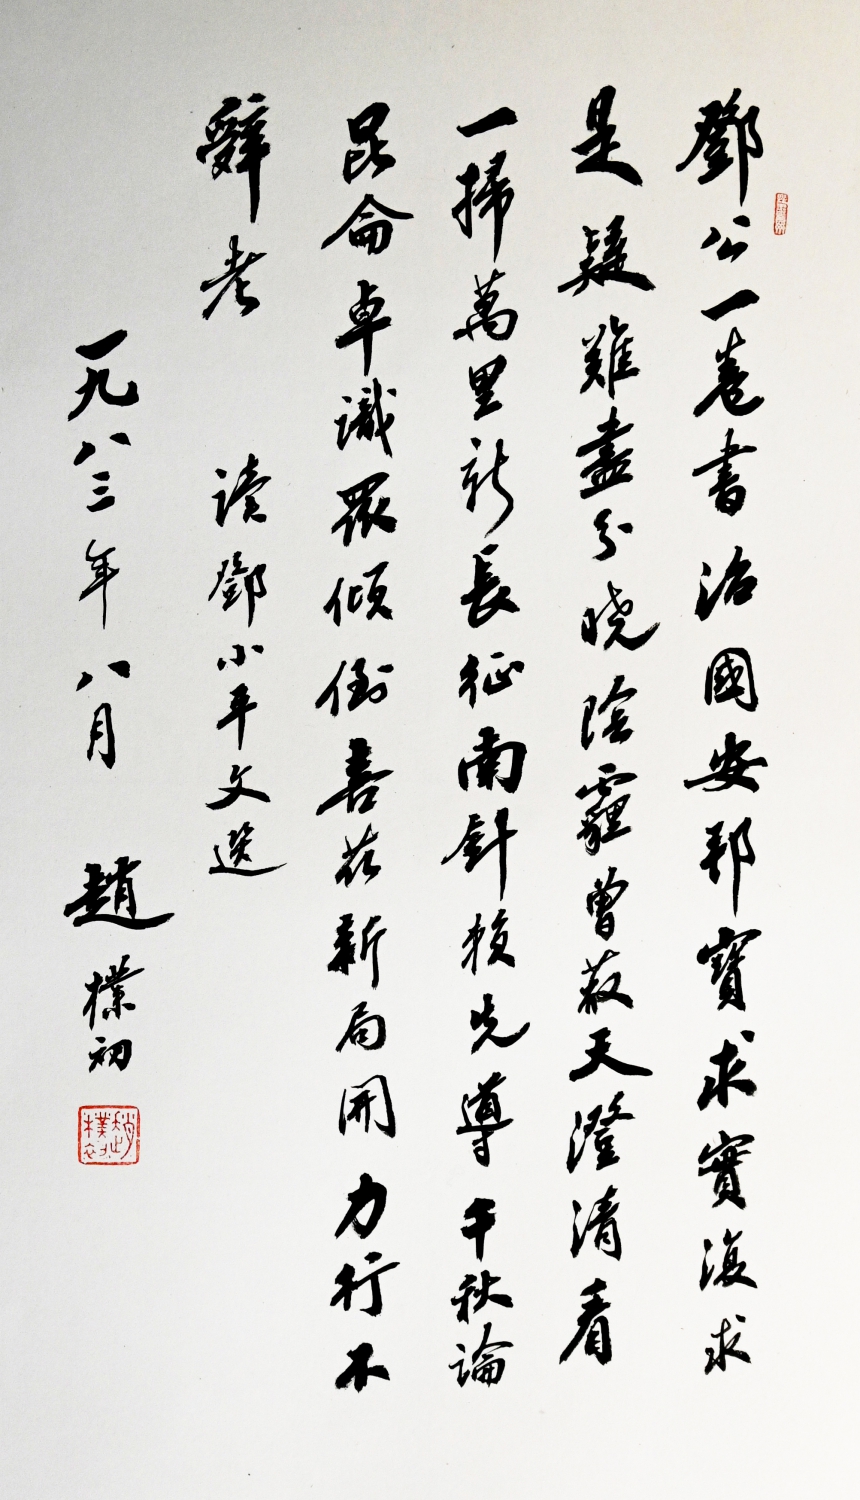 鄧公一卷書治國安邦寶求實復求
是疑難盡分曉陰霾曾蔽天澄清看
一掃萬里新長征南針賴先導千秋論
昆侖卓識眾傾倒喜茲新局開力行不
辭老 读鄧小平文选
一九八三年八月 趙樸初
趙樸初